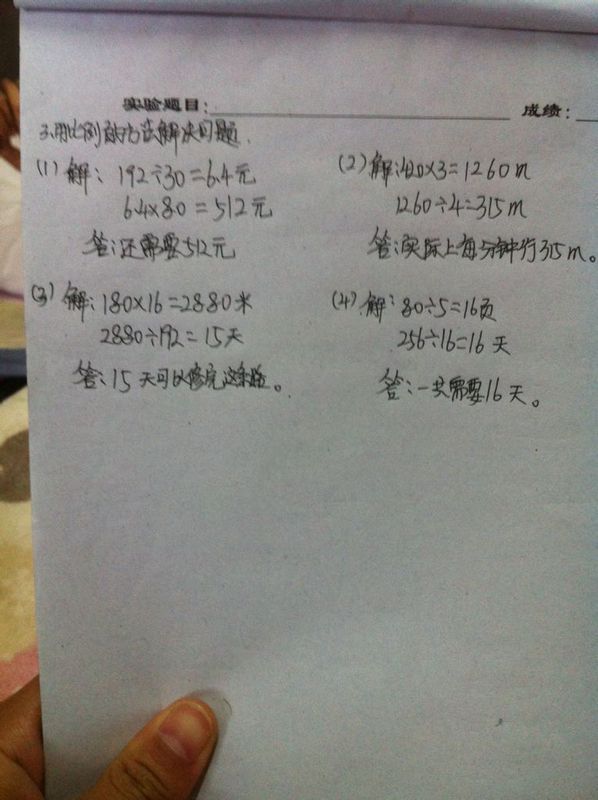 实验题目： 成绩：
3.用比例的方法解决问题.
(1) 解： 192÷30=6.4元
6.4×80=512元
答：还需要512元
(2) 解：420×3=1260m
1260÷4=315m
答：实际上每分钟行315m。
(3) 解：180×16=2880米
2880÷192=15天
答：15天可以修完这条路。
(4) 解：80÷5=16页
256÷16=16天
答：一共需要16天。